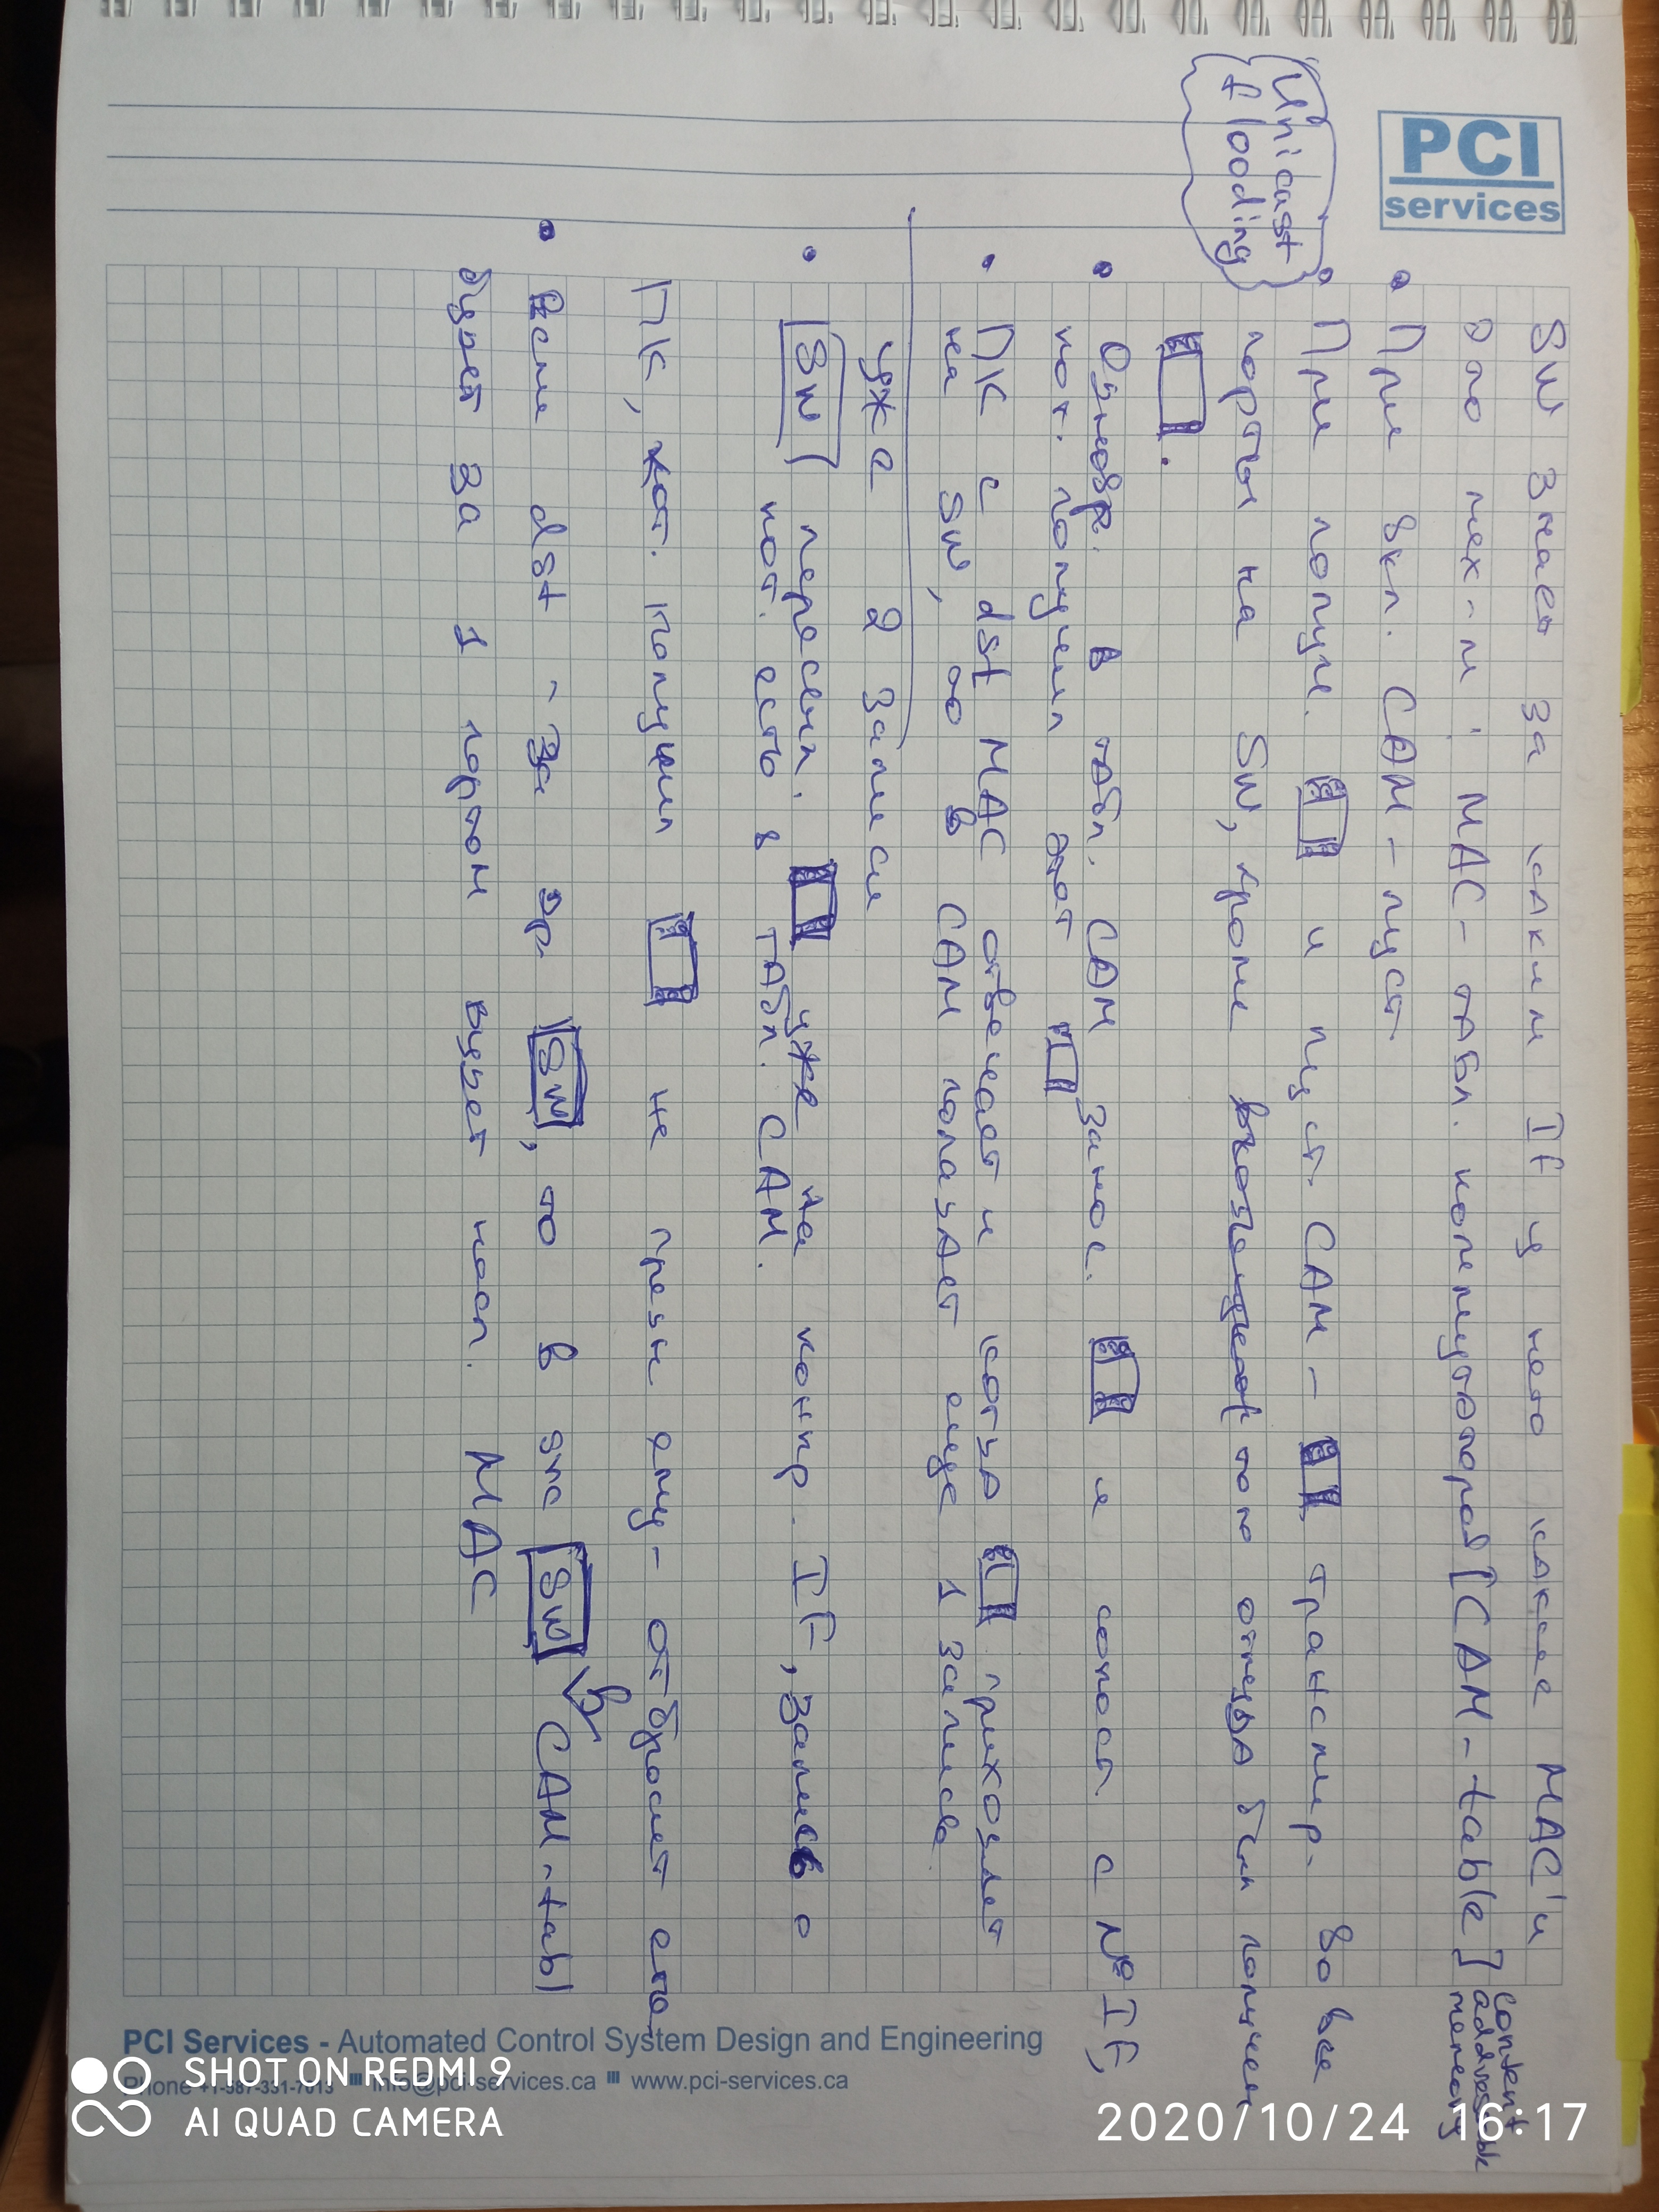 SW знает за каким If у него какие MAC'и
Это мех-м : MAC- табл. коммутаторов [CAM-table]
content
addressable
memory
При вкл. CAM - пуст
При получ. и пуст. CAM - транслир. во все
Unicast
flooding
порты на SW, кроме того откуда был получен
.
Одновр. в табл. CAM занос. и сопост. с № IF,
кот. получил этот
ПК с dst MAC отвечает и когда приходит
на SW, то в CAM попадает еще 1 запись.
уже 2 записи
SW пересыл. уже на конкр. IF, запись о
кот. есть в табл. CAM.
ПК, кот. получил не предн ему - отбросит его
Если dst - за др. SW, то в src SW в CAM-tabl
будет за 1 портом будет неск. MAC
PCI
services
PCI Services - Automated Control System Design and Engineering
www.pci-services.ca
2020/10/24 16:17
SHOT ON REDMI 9
AI QUAD CAMERA